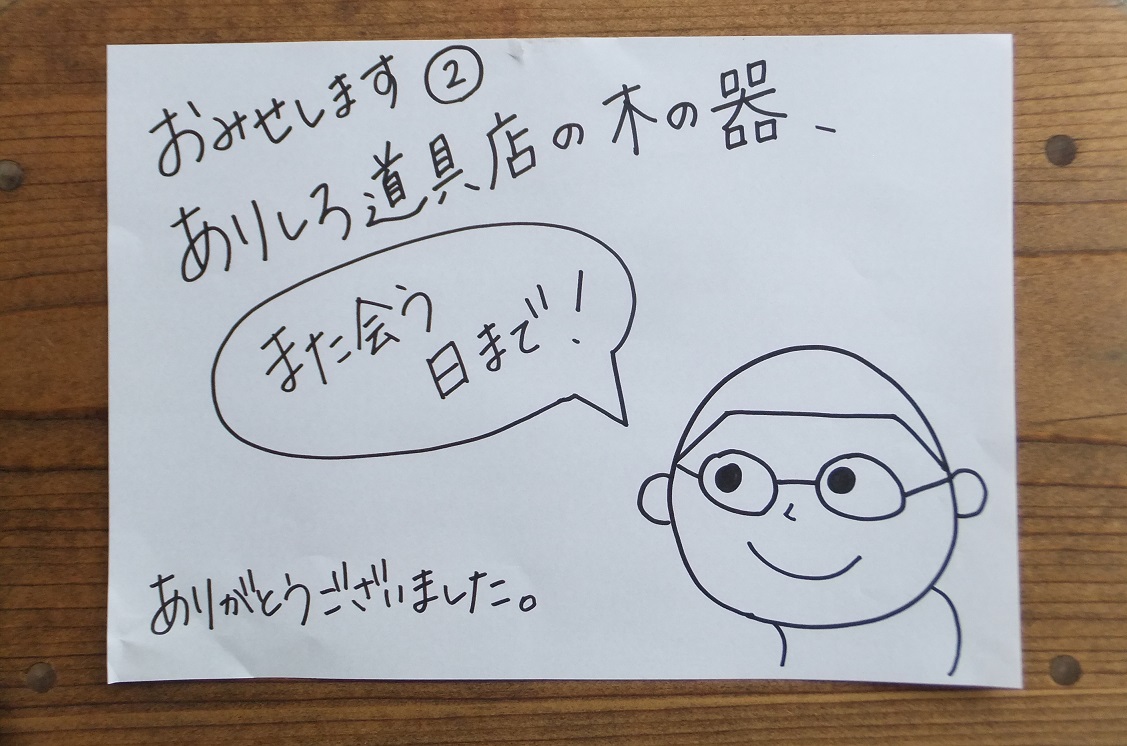 おみせします②
ありしろ道具店の木の器、
また会う
日まで!
ありがとうございました。